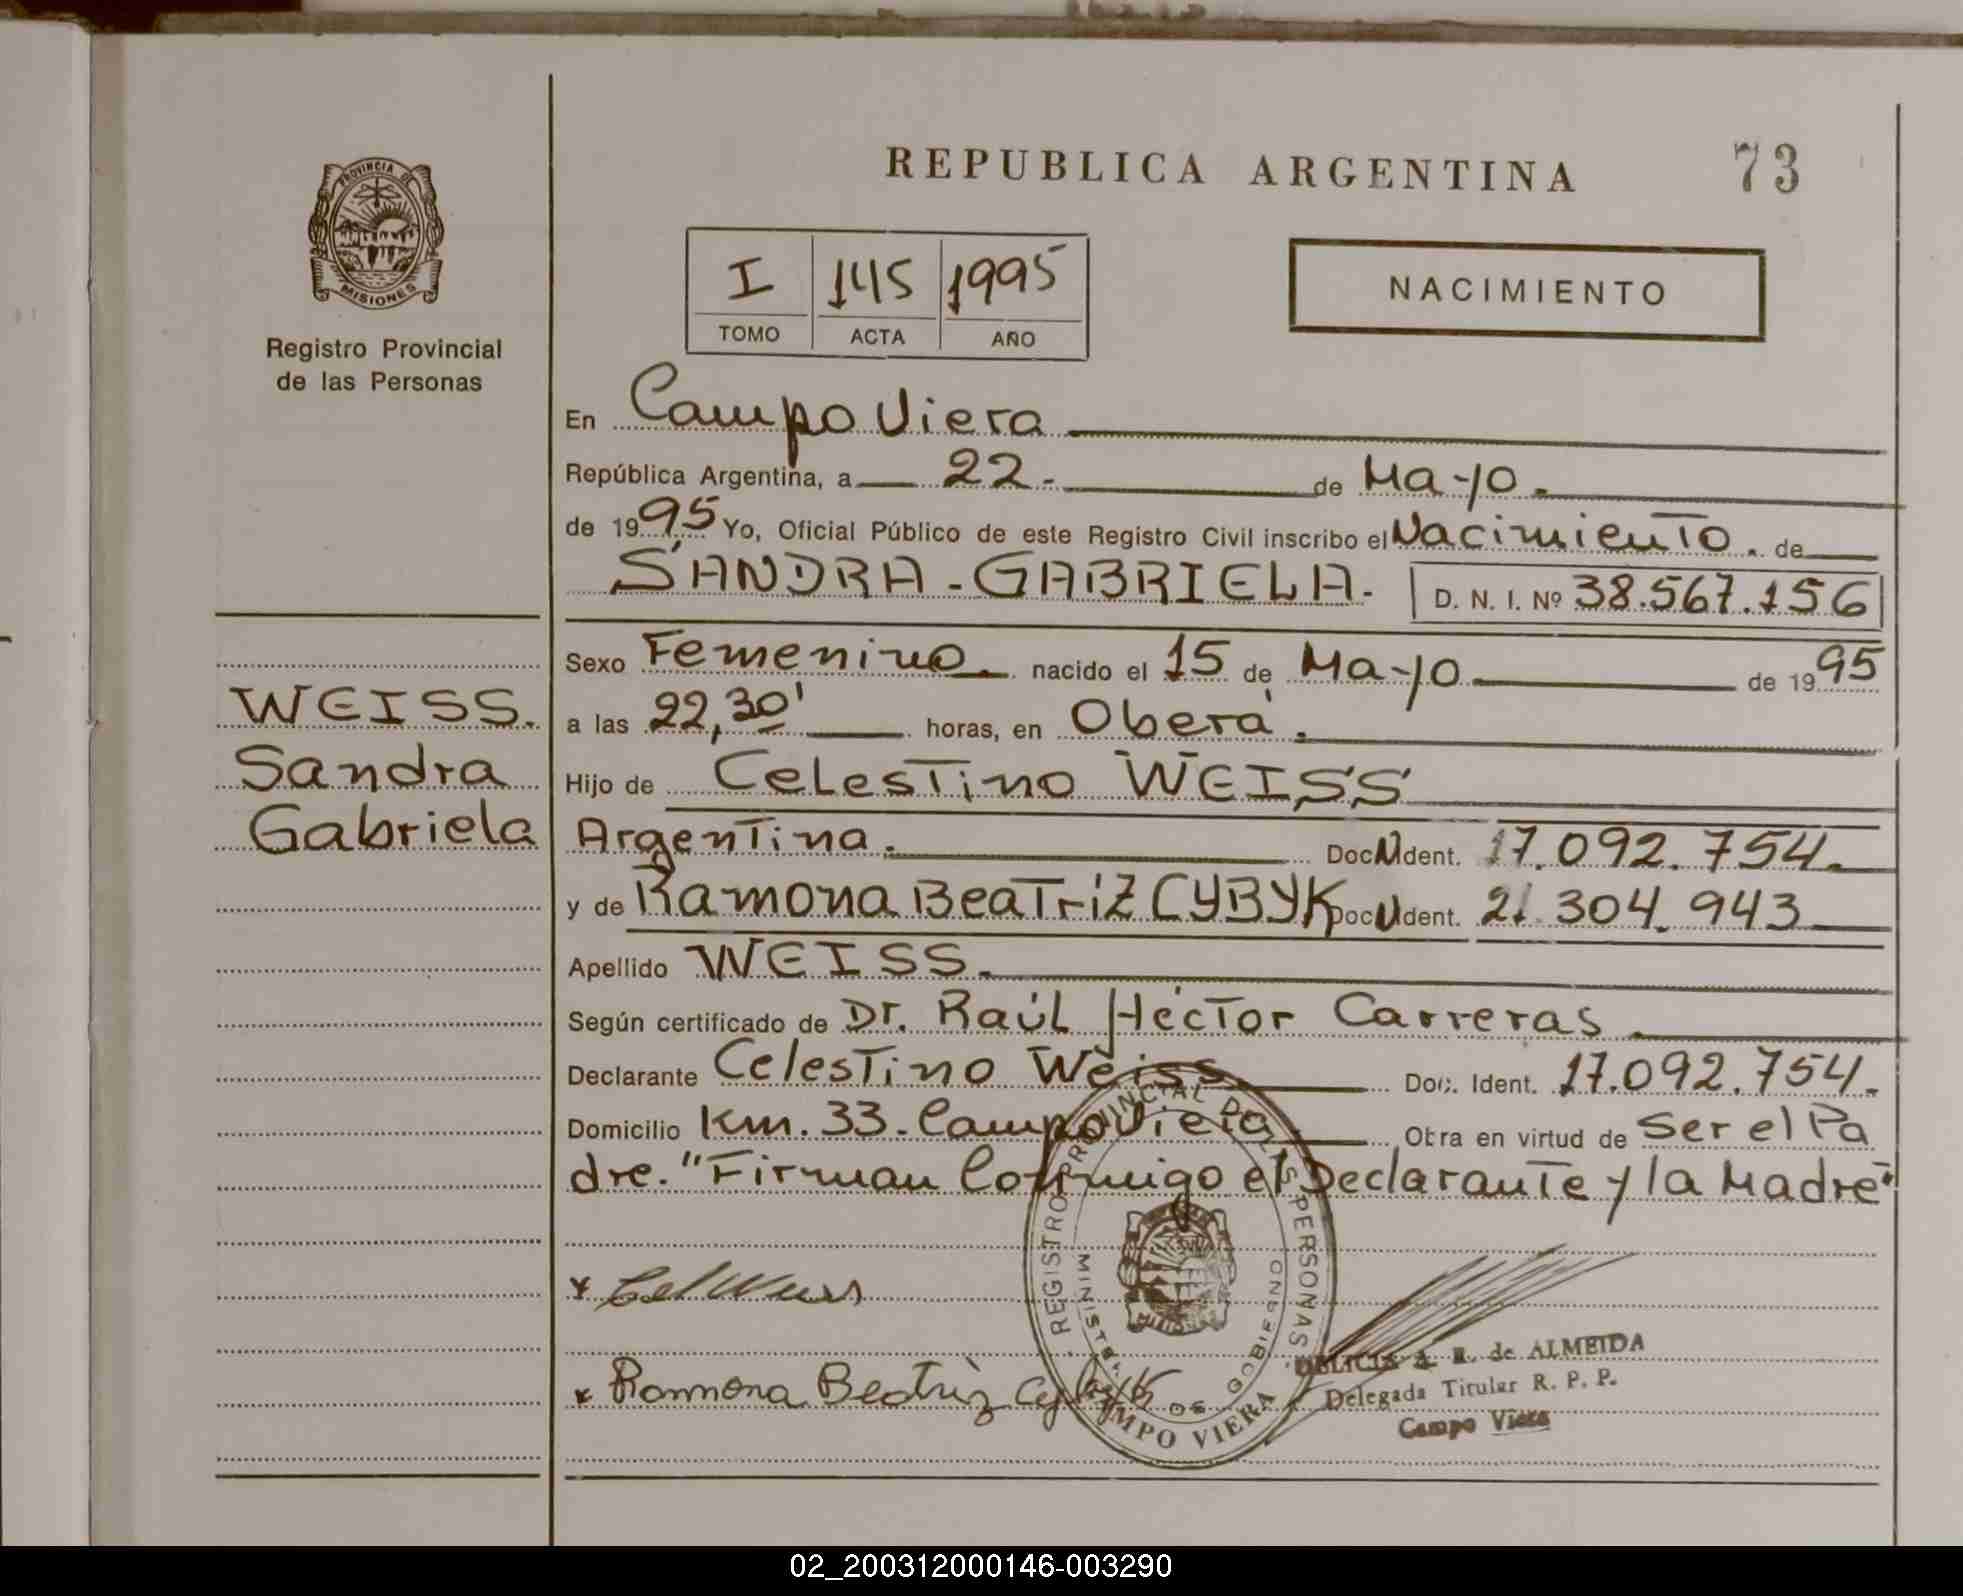 REPUBLICA ARGENTINA
73
PROVINCIA DE
MISIONES
Registro Provincial
de las Personas
I 145 1995
TOMO ACTA AÑO
NACIMIENTO
En Campo Viera
República Argentina, a 22.- de Mayo.
de 1995 Yo, Oficial Público de este Registro Civil inscribo el Nacimiento. de
SANDRA-GABRIELA. D. N. I. Nº 38.567.156
Sexo Femenino. nacido el 15 de Mayo de 1995
a las 22,30' horas, en Oberá.
Hijo de Celestino WEISS
Argentina. Doc. Ident. 17.092.754.
y de Ramona Beatriz CYBYK Doc. Ident. 21.304.943
Apellido WEISS.
Según certificado de Dr. Raúl Héctor Carreras.
Declarante Celestino Weiss. Doc. Ident. 17.092.754.
Domicilio Km. 33-Campo Viera Obra en virtud de Ser el Pa
dre. "Firman Conmigo el Declarante y la Madre"
WEISS.
Sandra
Gabriela
x Cel Weiss
x Ramona Beatriz Cybyk
REGISTRO PROVINCIAL DE LAS PERSONAS
MINISTERIO DE GOBIERNO
CAMPO VIERA
de ALMEIDA
Delegada Titular R. P. P.
Campo Viera
02_200312000146-003290